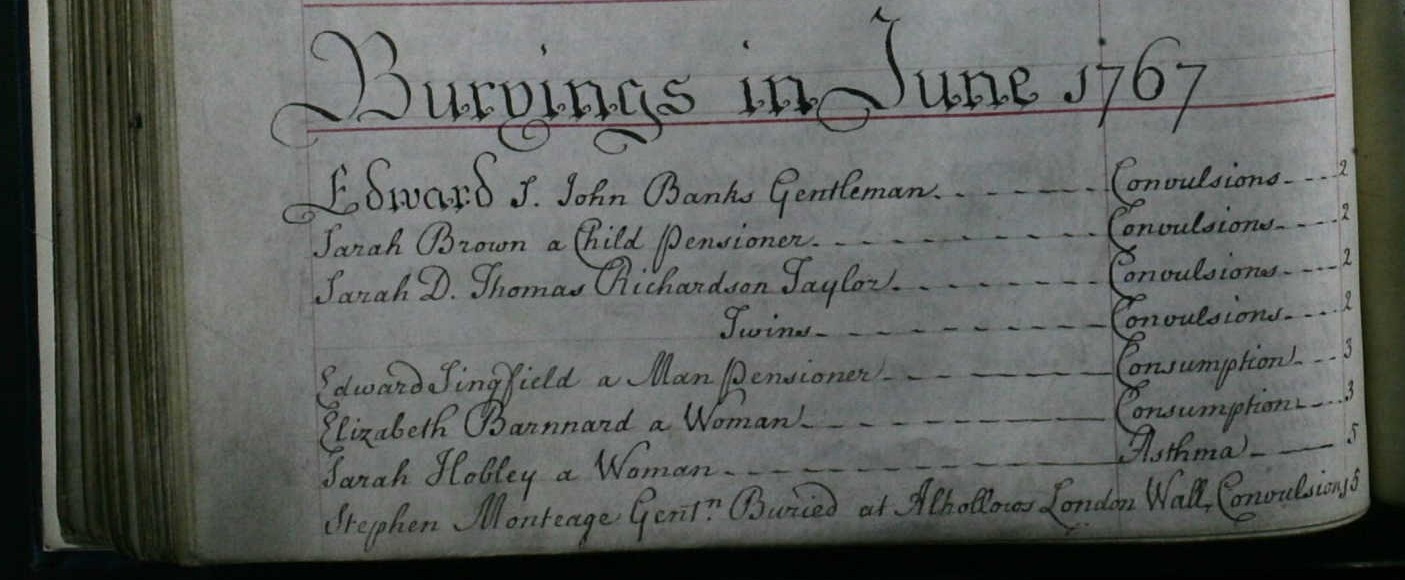 Buryings in June 1767
Edward S. John Banks Gentleman. Convulsions 2
Sarah Brown a Child Pensioner. Convulsions 2
Sarah D. Thomas Richardson Taylor. Convulsions 2
Twins Convulsions 2
Edward Singfield a Man Pensioner Consumption 3
Elizabeth Barnnard a Woman Consumption 3
Sarah Hobley a Woman Asthma 5
Stephen Monteage Gentn. Buried at Alhollows London Wall, Convulsions 5